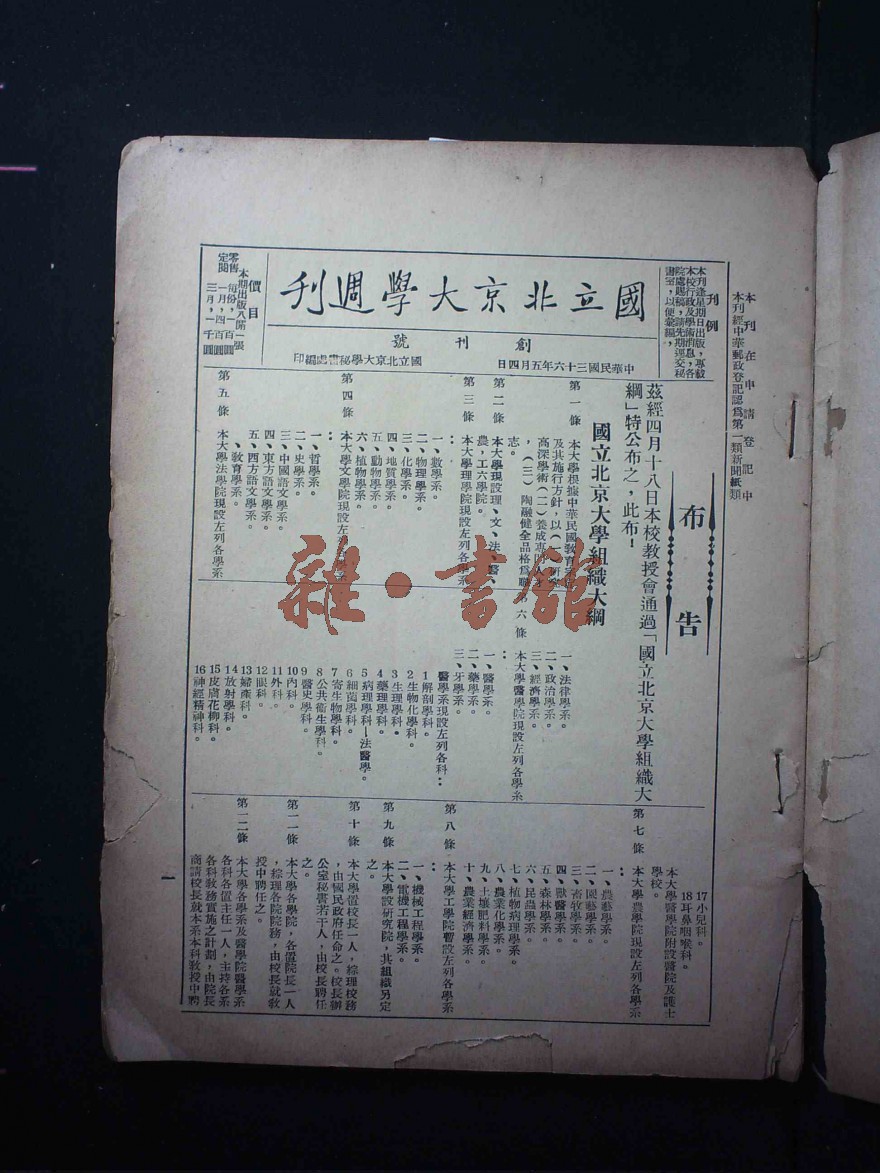 本刊在申請登記中
本刊經中華郵政登記認爲第一類新聞紙類
刊例
本刊逢星期日出版，專載
本校行政及學術消息，各
院處賜稿，請先期逕交秘
書室，以便彙編，
國立北京大學週刊
創刊號
中華民國三十六年五月四日
國立北京大學秘書處編印
價目
本期出版八開一張
零售 每份，一百圓
定閱 一月，四百圓
三月，一千圓
布告
茲經四月十八日本校教授會通過「國立北京大學組織大
綱」特公布之，此布！
國立北京大學組織大綱
第一條
本大學根據中華民國教育宗旨
及其施行方針，以（一）研究
高深學術（二）養成專門人才
，（三）陶融健全品格爲職
志。
第二條
本大學現設理、文、法、醫、
農，工六學院。
第三條
本大學理學院現設左列各學系
：
一、數學系。
二、物理學系。
三、化學系。
四、地質學系。
五、動物學系。
六、植物學系。
第四條
本大學文學院現設左列各學系
：
一、哲學系。
二、史學系。
三、中國語文學系。
四、東方語文學系。
五、西方語文學系。
、教育學系。
第五條
本大學法學院現設左列各學系
一、法律學系。
二、政治學系。
三、經濟學系。
第六條
本大學醫學院現設左列各學系
：
一、醫學系。
二、藥學系。
三、牙學系。
醫學系現設左列各科：
1 解剖學科。
2 生物化學科。
3 生理學科。
4 藥理學科。
5 病理學科—法醫學。
6 細菌學科。
7 寄生物學科。
8 公共衞生學科。
9 醫史學科。
10 內科。
11 外科。
12 眼科。
13 婦產科。
14 放射學科。
15 皮膚花柳科。
16 神經精神科。
17 小兒科。
18 耳鼻咽喉科。
本大學醫學院附設醫院及護士
學校。
第七條
本大學農學院現設左列各學系
：
一、農藝學系。
二、園藝學系。
三、畜牧學系。
四、獸醫學系。
五、森林學系。
六、昆蟲學系。
七、植物病理學系。
八、農業化學系。
九、土壤肥料學系。
十、農業經濟學系。
第八條
本大學工學院暫設左列各學系
：
一、機械工程學系。
二、電機工程學系。
第九條
本大學設研究院，共組織另定
之。
第十條
本大學置校長一人，綜理校務
，由國民政府任命之。校長辦
公室秘書若干人，由校長聘任
之。
第一一條
本大學各學院，各置院長一人
，綜理院務，由校長就教
授中聘任之。
第一二條
本大學各學系及醫學院醫學系
各科各置主任一人，主持各系
各科教務實施之計劃，由院長
商請校長就本系本科教授中聘
一
雜·書館